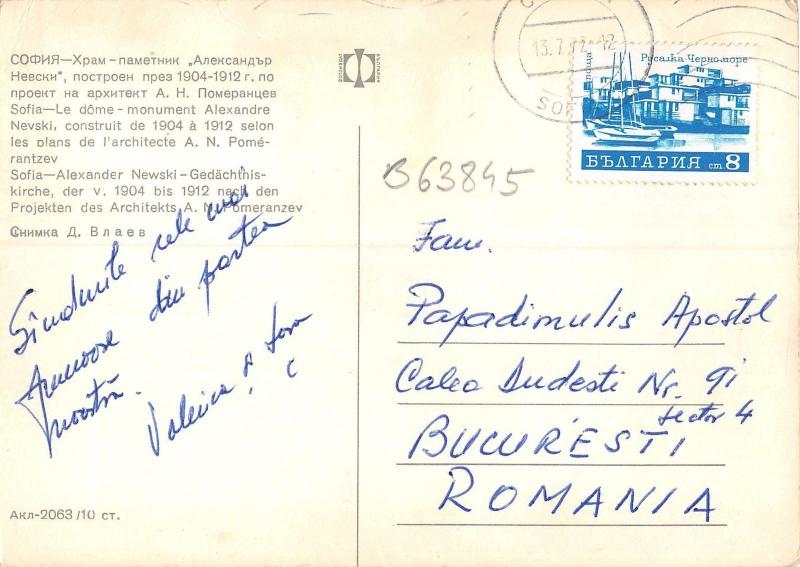 СОФИЯ—Храм-паметник „Александър
Невски", построен през 1904-1912 г. по
проект на архитект А. Н. Померанцев
Sofia—Le dôme-monument Alexandre
Nevski, construit de 1904 à 1912 selon
les plans de l'architecte A. N. Pomé-
rantzev
Sofia—Alexander Newski-Gedächtnis-
kirche, der v. 1904 bis 1912 nach den
Projekten des Architekts A. N. Pomeranzev
Снимка Д. Влаев
Gîndurile cele mai
frumoase din partea
noastră.
Акл-2063/10 ст.
13.7.72-12
Русалка Черноморе
БЪЛГАРИЯ ст 8
B63845
Fam.
Papadimulis Apostol
Calea Dudesti Nr. 91
sector 4
BUCURESTI
ROMANIA